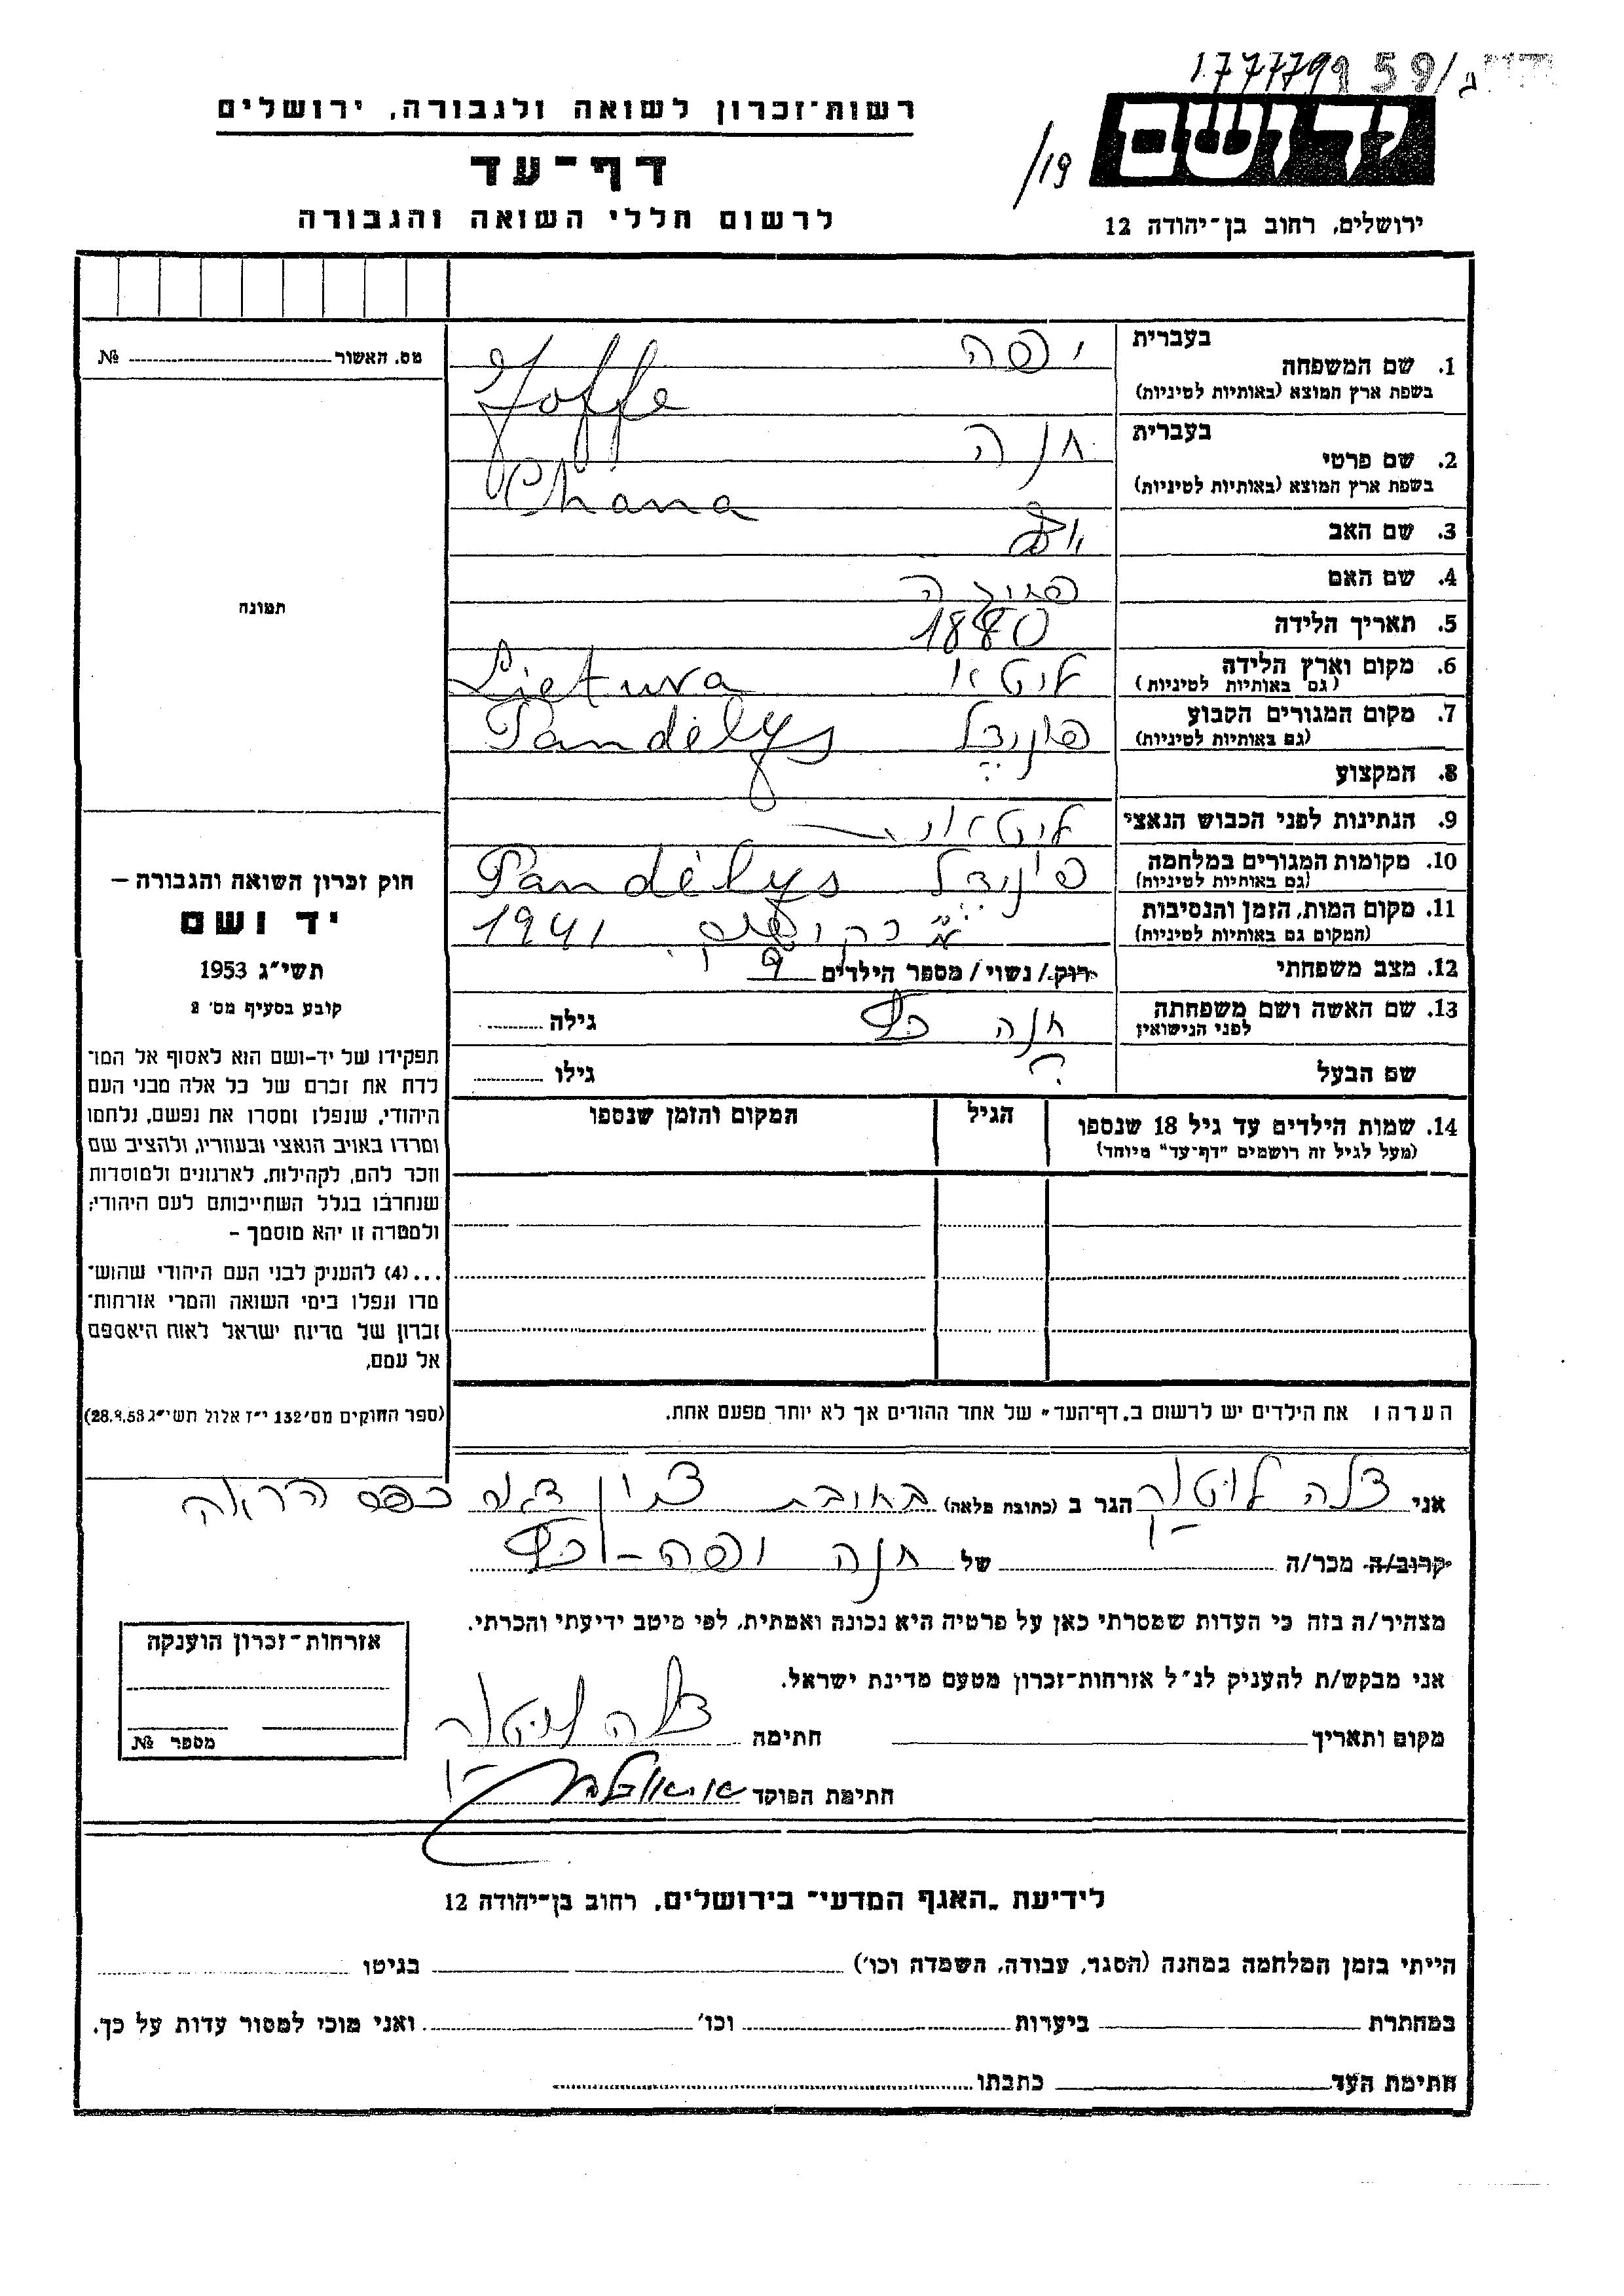 177779
159/ג
רשות־זכרון לשואה ולגבורה, ירושלים
יד ושם
דף־עד
19/
לרשום חללי השואה והגבורה
ירושלים, רחוב בן־יהודה 12
בעברית
1. שם המשפחה
בשפת ארץ המוצא (באותיות לטיניות)
יפה
Joffe
בעברית
2. שם פרטי
בשפת ארץ המוצא (באותיות לטיניות)
חנה
Chana
3. שם האב
4. שם האם
5. תאריך הלידה 1880
6. מקום וארץ הלידה
(גם באותיות לטיניות)
ליטא Lietuva
7. מקום המגורים הקבוע
(גם באותיות לטיניות)
פונידל Pandėlys
8. המקצוע
9. הנתינות לפני הכבוש הנאצי ליטאית
10. מקומות המגורים במלחמה
(גם באותיות לטיניות)
פונידל Pandėlys
11. מקום המות, הזמן והנסיבות
(המקום גם באותיות לטיניות)
1941
12. מצב משפחתי רוק/ נשוי/ מספר הילדים
13. שם האשה ושם משפחתה
לפני הנישואין
חנה כץ גילה
שם הבעל ? גילו
14. שמות הילדים עד גיל 18 שנספו
(מעל לגיל זה רושמים "דף־עד" מיוחד)
הגיל
המקום והזמן שנספו
הערה: את הילדים יש לרשום ב„דף־העד" של אחד ההורים אך לא יותר מפעם אחת.
מס. האשור №
תמונה
חוק זכרון השואה והגבורה –
יד ושם
תשי"ג 1953
קובע בסעיף מס' 2
תפקידו של יד–ושם הוא לאסוף אל המו־
לדת את זכרם של כל אלה מבני העם
היהודי, שנפלו ומסרו את נפשם, נלחמו
ומרדו באויב הנאצי ובעוזריו, ולהציב שם
וזכר להם, לקהילות, לארגונים ולמוסדות
שנחרבו בגלל השתייכותם לעם היהודי;
ולמטרה זו יהא מוסמך –
...(4) להעניק לבני העם היהודי שהוש־
מדו ונפלו בימי השואה והמרי אזרחות־
זכרון של מדינת ישראל לאות היאספם
אל עמם.
(ספר החוקים מס' 132 י"ז אלול תשי"ג 28.8.53)
אני הגר ב (כתובת מלאה) רחובת כפר הרא"ה
קרוב/ה מכר/ה של חנה יפה – כץ
מצהיר/ה בזה כי העדות שמסרתי כאן על פרטיה היא נכונה ואמתית, לפי מיטב ידיעתי והכרתי.
אני מבקש/ת להעניק לנ"ל אזרחות־זכרון מטעם מדינת ישראל.
מקום ותאריך חתימה
חתימת הפוקד
אזרחות־זכרון הוענקה
מספר №
לידיעת „האגף המדעי" בירושלים, רחוב בן־יהודה 12
הייתי בזמן המלחמה במחנה (הסגר, עבודה, השמדה וכו') בגיטו
במחתרת ביערות וכו' ואני מוכן למסור עדות על כך.
חתימת העד כתבתו